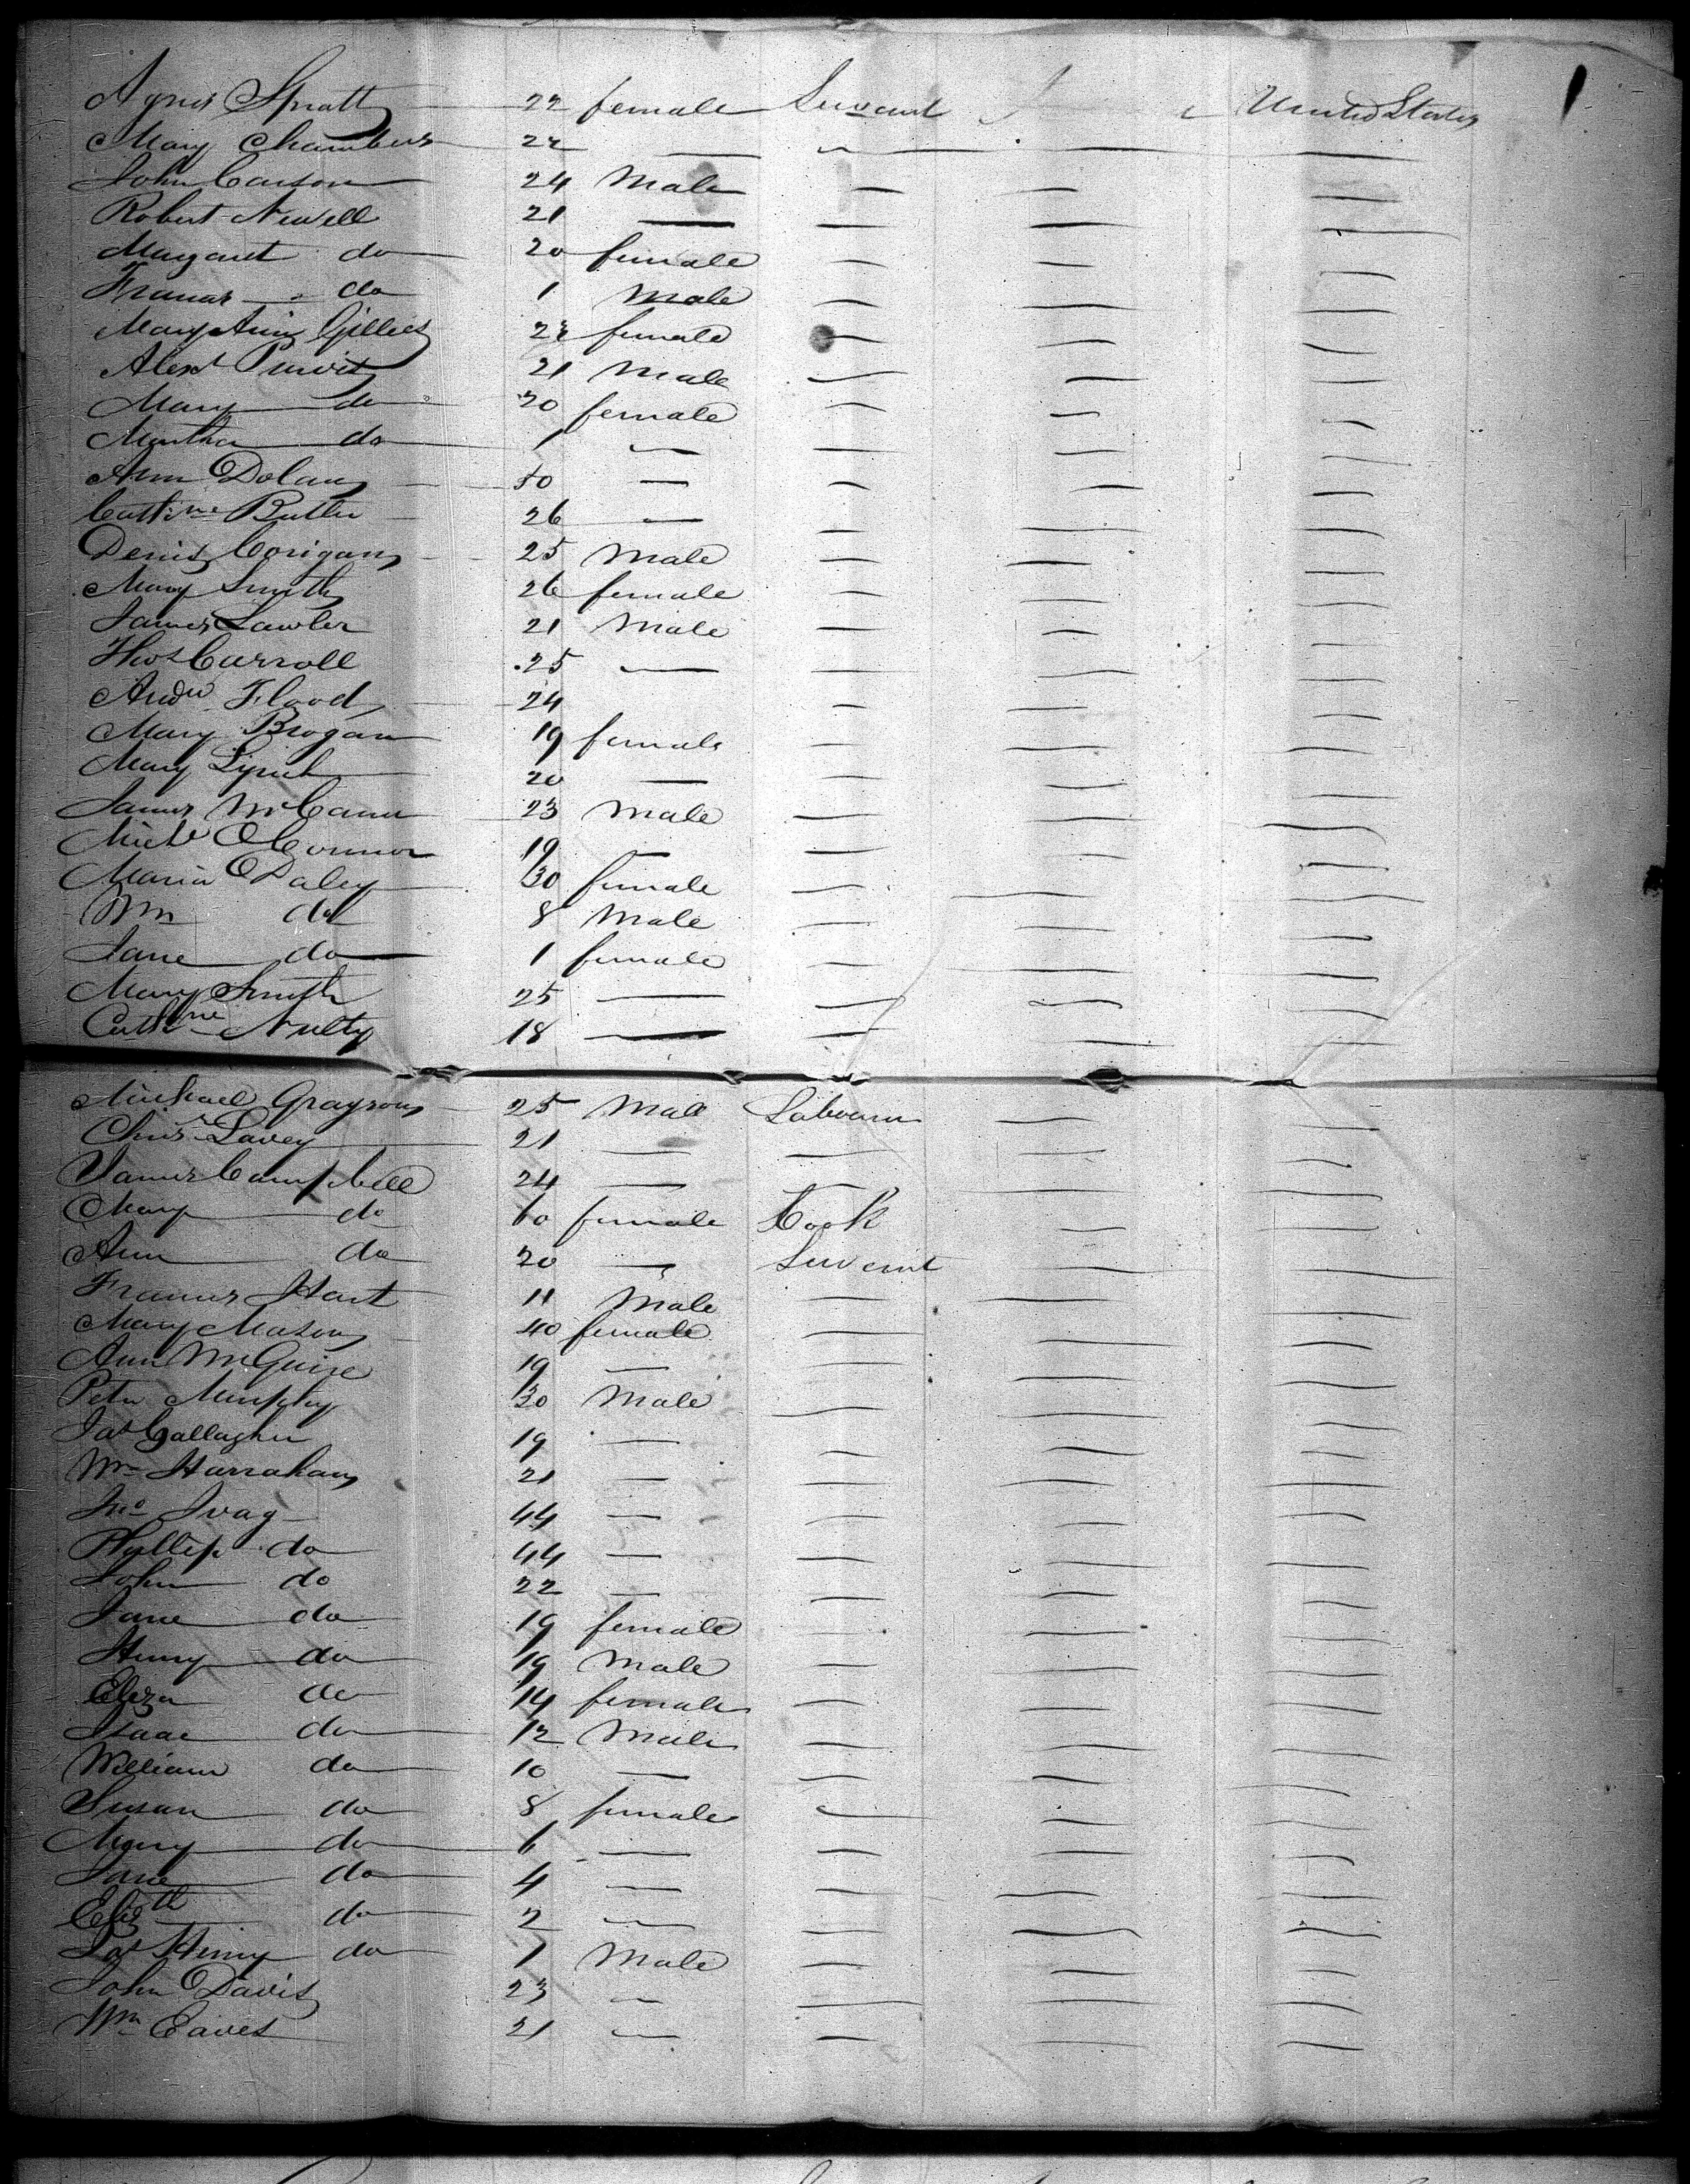 Agnes Spratt 22 female Servant United States
Mary Chambers 22 — — — —
John Carson 24 Male — — —
Robert Newell 21 — — — —
Margaret do 20 female — — —
Francis do 1 Male — — —
Mary Ann Gillies 22 female — — —
Alexr Purvis 21 Male — — —
Mary do 20 female — — —
Martha do 1 — — — —
Ann Dolan 50 — — — —
Cathne Butler 26 — — — —
Denis Corigan 25 Male — — —
Mary Smith 26 female — — —
James Lawler 21 Male — — —
Thos Carroll 25 — — — —
Andw Flood 24 — — —
Mary Brogan 19 female — — —
Mary Lynch 20 — — — —
James McCann 23 Male — — —
Michl OConnor 19 — — — —
Maria Daley 30 female — — —
Wm do 8 Male — — —
Jane do 1 female — — —
Mary Smith 25 — — — —
Cathne Nulty 18 — — — —
Michael Grayson 25 Male Labourer — —
Chisr Lavey 21 — — — —
James Campbell 24 — — — —
Mary do 60 female Cook — —
Ann do 20 — Servant — —
Francis Hart 11 Male — — —
Mary Mason 40 female — — —
Ann McGuire 19 — — — —
Peter Murphy 30 Male — — —
Jas Gallagher 19 — — — —
Wm Harrahan 21 — — — —
Jno Ivag 44 — — — —
Phyllip do 44 — — — —
John do 22 — — — —
Jane do 19 female — — —
Henry do 19 Male — — —
Eliza do 14 female — — —
Isaac do 12 Male — — —
William do 10 — — — —
Susan do 8 female — — —
Mary do 6 — — — —
Jane do 4 — — — —
Elizth do 2 — — — —
Jas Henry do 1 Male — — —
John Davis 23 — — — —
Wm Eaves 21 — — — —